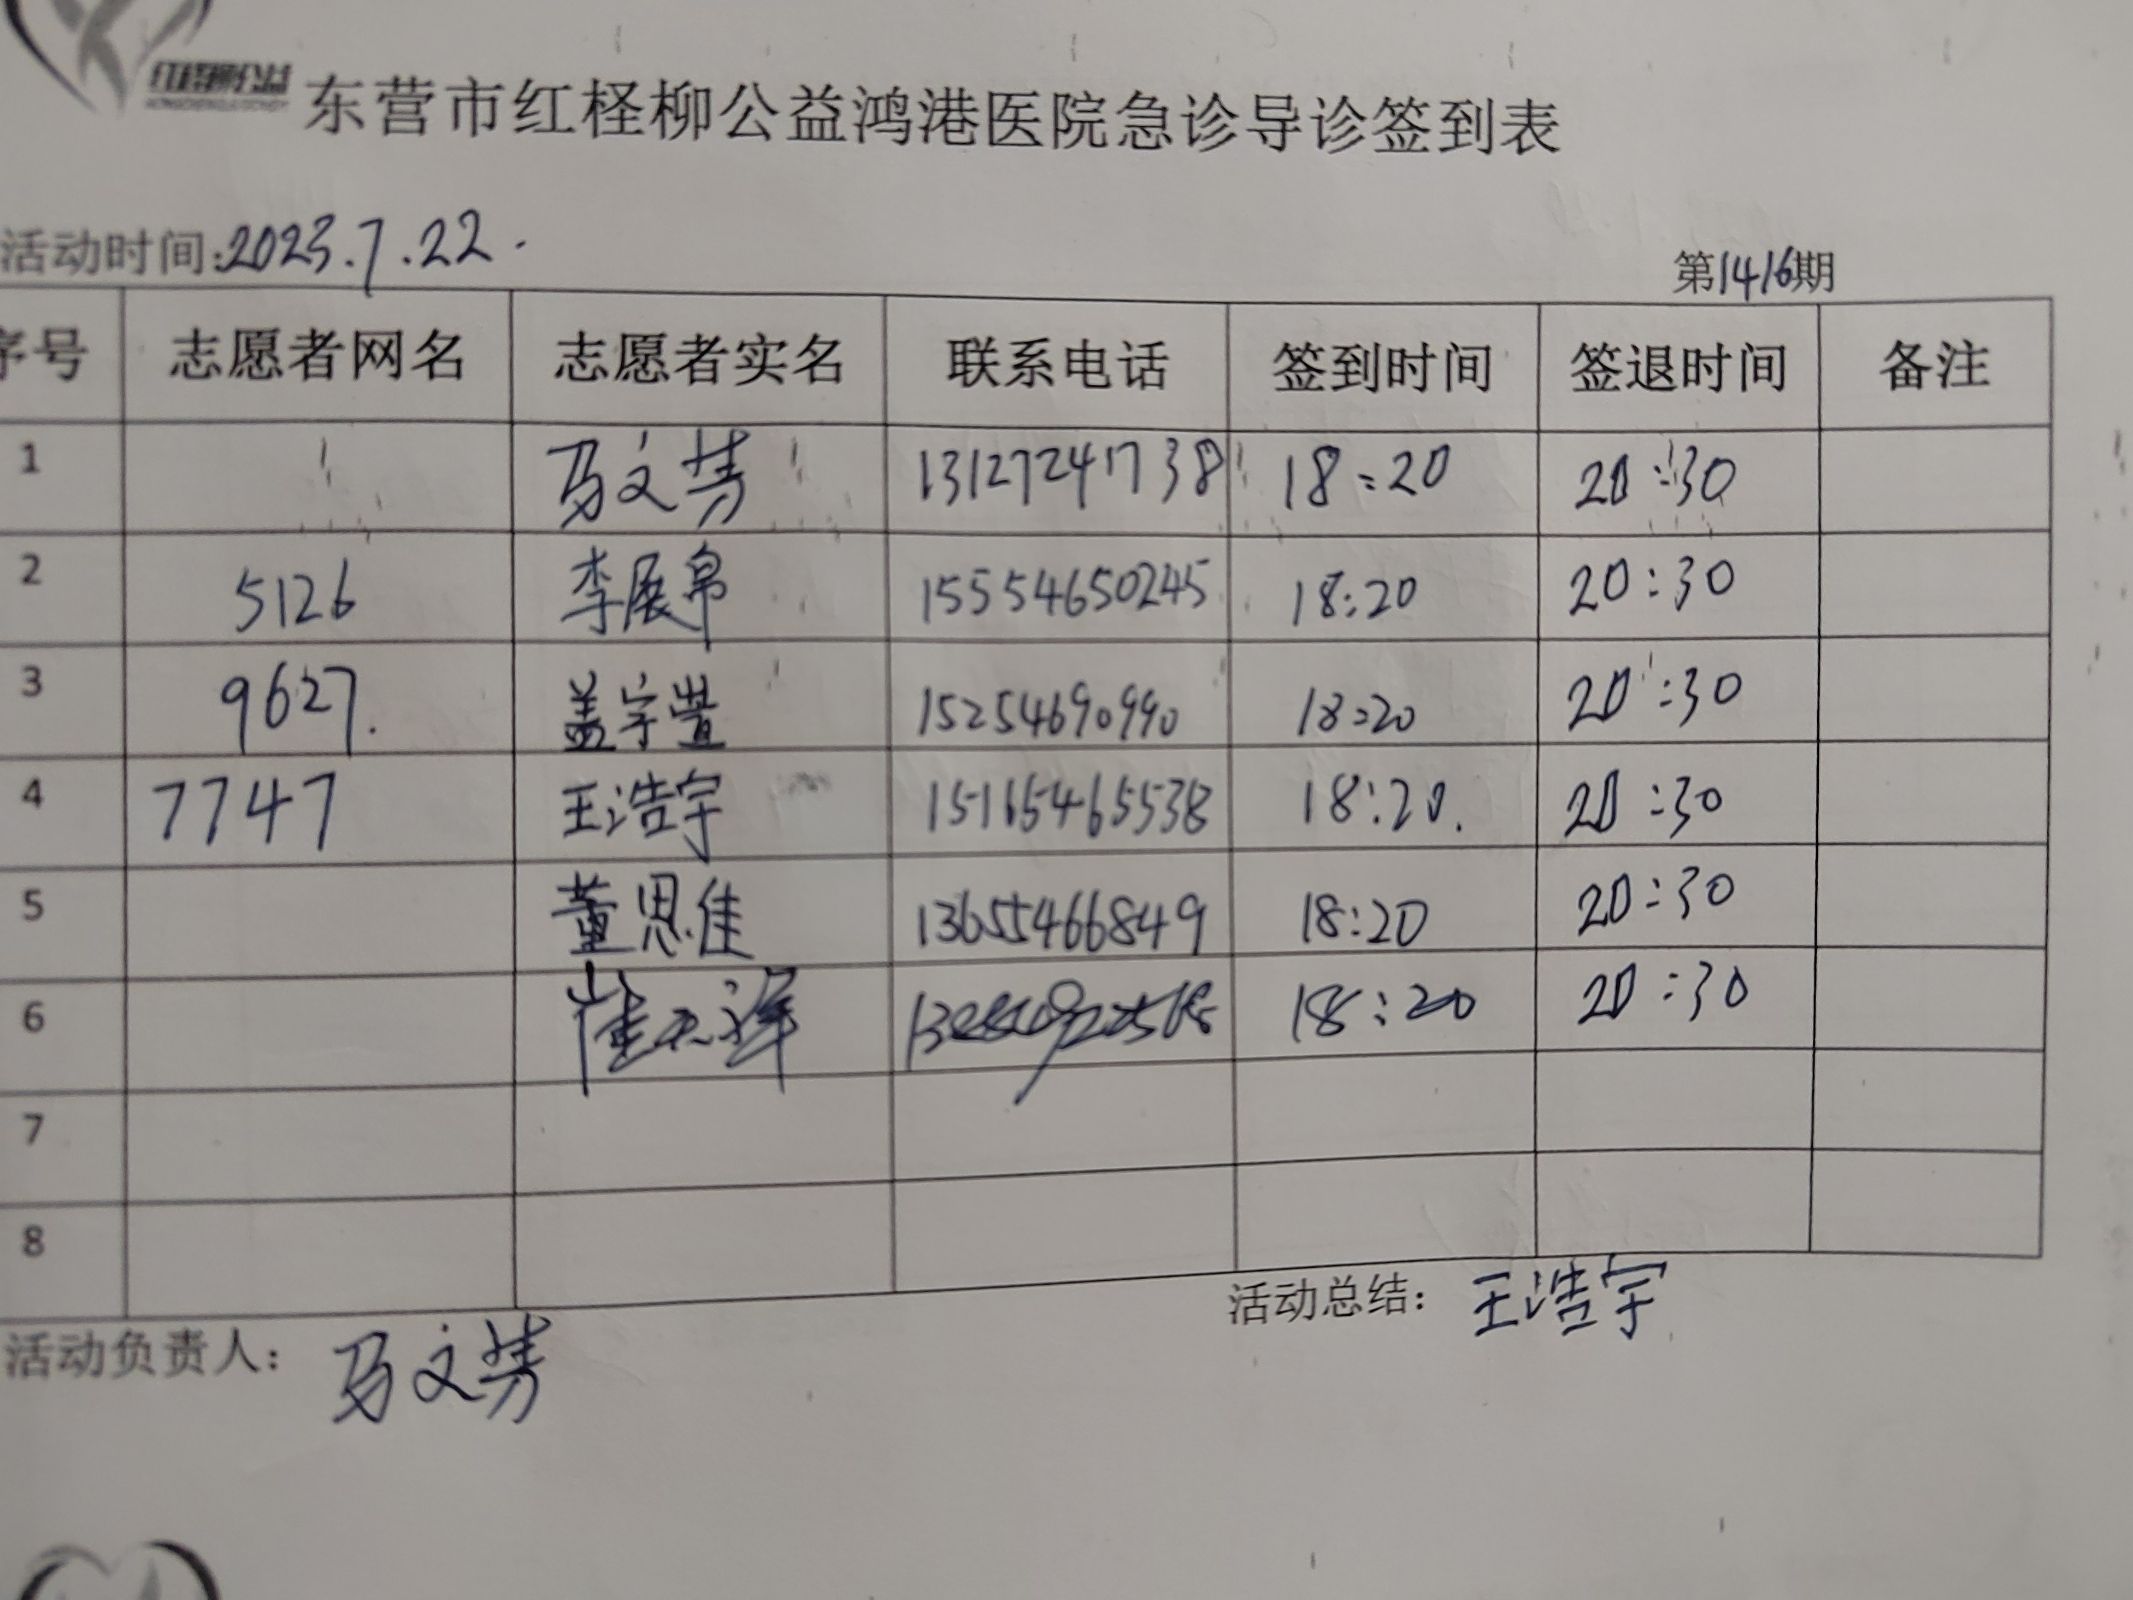 红柽柳公益
东营市红柽柳公益鸿港医院急诊导诊签到表
活动时间:2023.7.22.
第1416期
序号 志愿者网名 志愿者实名 联系电话 签到时间 签退时间 备注
1 马文芳 13127241738 18:20 20:30
2 5126 李展帛 15554650245 18:20 20:30
3 9627. 盖宇萱 15254690990 18:20 20:30
4 7747 王浩宇 15165465538 18:20. 20:30
5 董思佳 13655466849 18:20 20:30
6 18:20 20:30
7
8
活动总结: 王浩宇
活动负责人: 马文芳